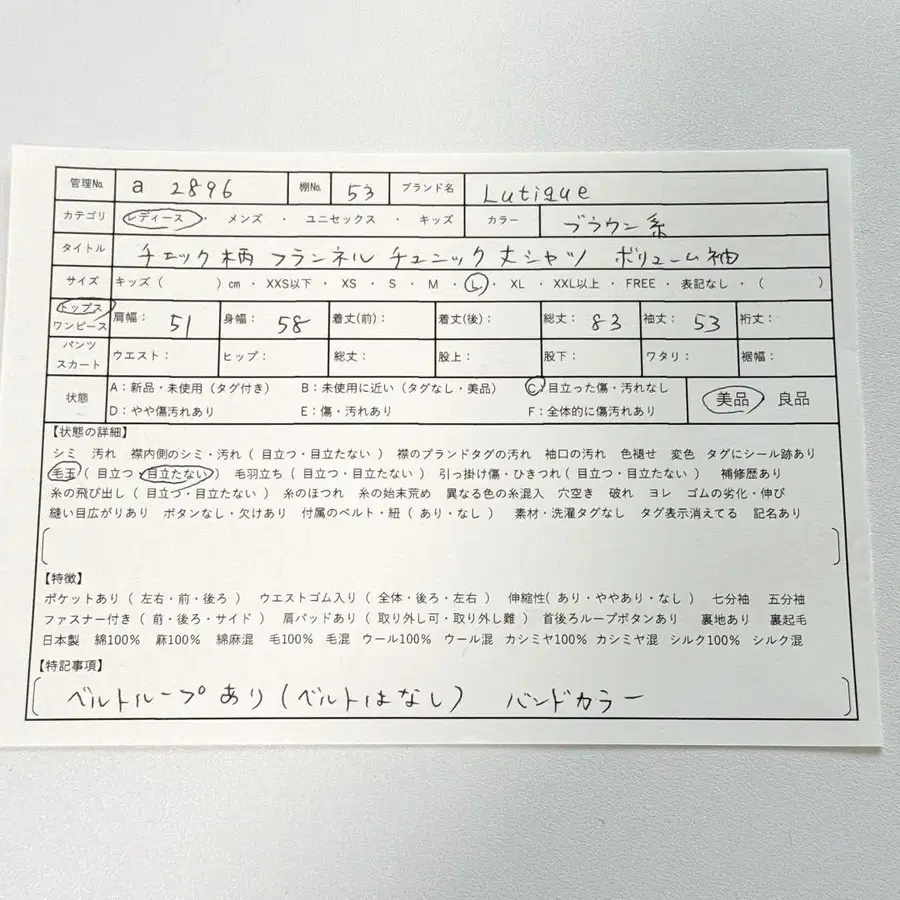 管理No. a 2896 棚No. 53 ブランド名 Lutique
カテゴリ レディース ・ メンズ ・ ユニセックス ・ キッズ カラー ブラウン系
タイトル チェック柄 フランネル チュニック丈シャツ ボリューム袖
サイズ キッズ（ ）cm ・ XXS以下 ・ XS ・ S ・ M ・ L ・ XL ・ XXL以上 ・ FREE ・ 表記なし ・（ ）
トップス ワンピース 肩幅： 51 身幅： 58 着丈(前)： 着丈(後)： 総丈： 83 袖丈： 53 裄丈：
パンツ スカート ウエスト： ヒップ： 総丈： 股上： 股下： ワタリ： 裾幅：
状態 A：新品・未使用（タグ付き） B：未使用に近い（タグなし・美品） C：目立った傷・汚れなし 美品 良品
D：やや傷汚れあり E：傷・汚れあり F：全体的に傷汚れあり
【状態の詳細】
シミ 汚れ 襟内側のシミ・汚れ（ 目立つ・目立たない ） 襟のブランドタグの汚れ 袖口の汚れ 色褪せ 変色 タグにシール跡あり
毛玉（ 目立つ・目立たない ） 毛羽立ち（ 目立つ・目立たない ） 引っ掛け傷・ひきつれ（ 目立つ・目立たない ） 補修歴あり
糸の飛び出し（ 目立つ・目立たない ） 糸のほつれ 糸の始末荒め 異なる色の糸混入 穴空き 破れ ヨレ ゴムの劣化・伸び
縫い目広がりあり ボタンなし・欠けあり 付属のベルト・紐（ あり・なし ） 素材・洗濯タグなし タグ表示消えてる 記名あり
【特徴】
ポケットあり（ 左右・前・後ろ ） ウエストゴム入り（ 全体・後ろ・左右 ） 伸縮性( あり・ややあり・なし ） 七分袖 五分袖
ファスナー付き（ 前・後ろ・サイド ） 肩パッドあり（ 取り外し可・取り外し難 ） 首後ろループボタンあり 裏地あり 裏起毛
日本製 綿100% 麻100% 綿麻混 毛100% 毛混 ウール100% ウール混 カシミヤ100% カシミヤ混 シルク100% シルク混
【特記事項】
ベルトループあり（ベルトはなし） バンドカラー